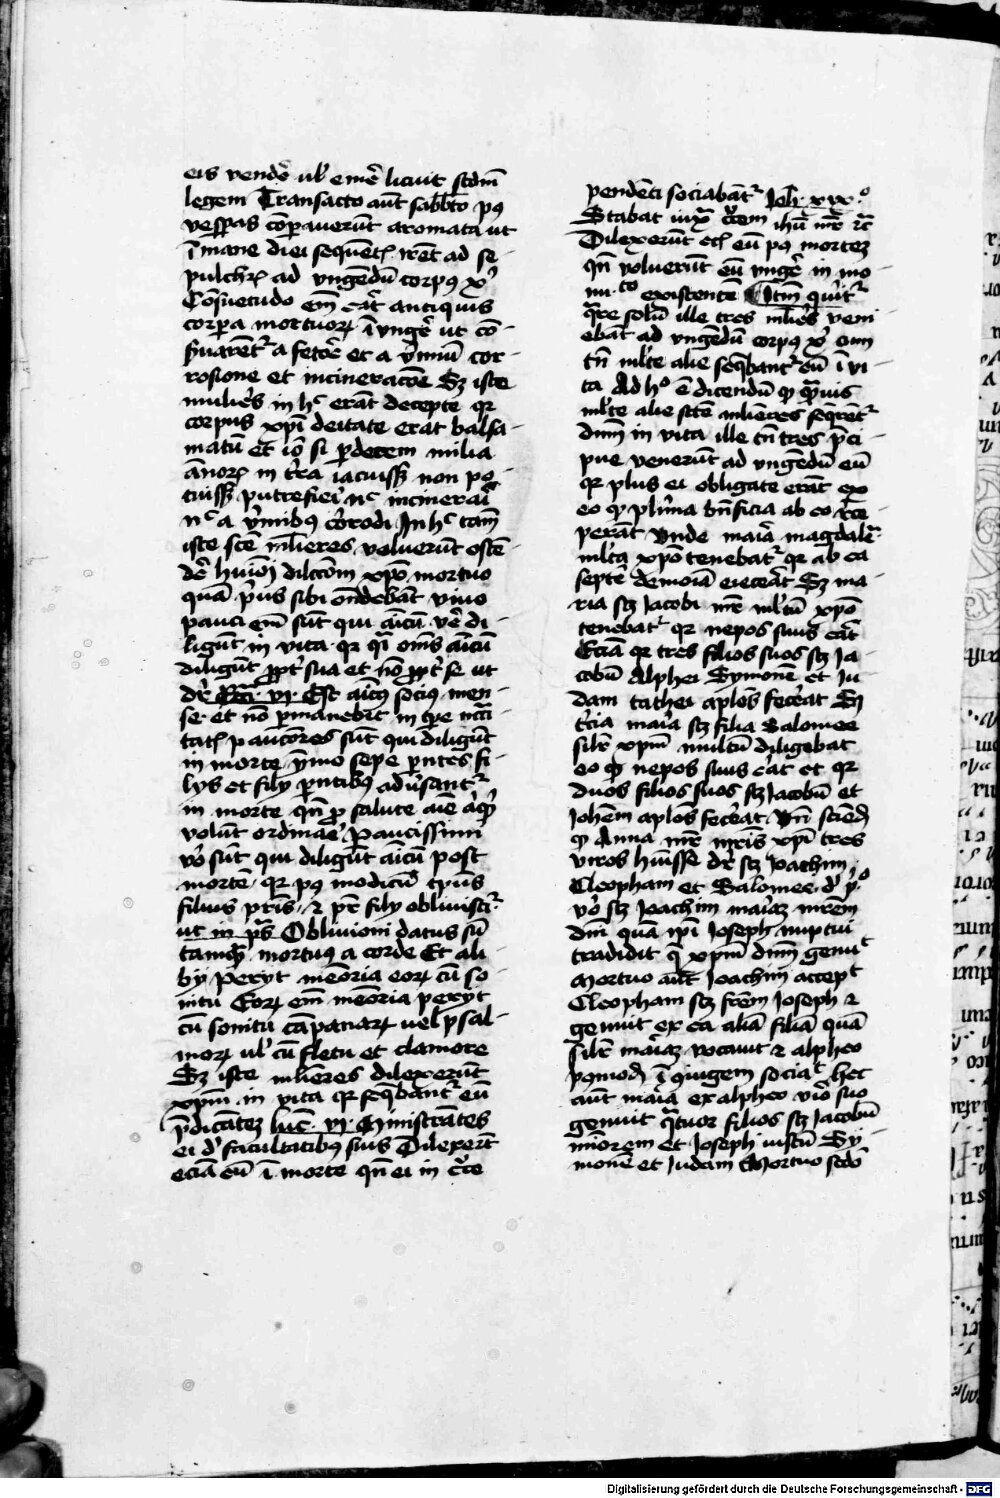 eis vendē ul' emē licuit scdm̄
legem Transacto aūt sabb̄to pꝰ
vesꝑas cōꝑaverūt aromata ut
ī mane diei seq̄uētꝭ irēt ad se-
pulchrꝭ ad vngēdū corpꝰ xp̄i
Cōsuetudo em̄ erat antiquis
corꝑa mortuoꝝ īvngē ut cō-
ẜuarētʳ a fetoē et a v̄miū cor-
rosione et incineracōe Sꝫ iste
mulieẜ in hᶜ erāt decepte qꝛ
corpus xp̄i deitate erat balsa-
matū et iō si ꝑ decem milia
ānorꝭ in tr̄ra iacuissꝫ non po-
tuissꝫ putrefieri nᶜ incinerari
nᶜ a v̄mibꝰ cōrodi In hᶜ tam̄
iste scē ml̄ieres voluerūt ostē-
dē huiꝰmōi dilcc̄om xp̄o mortuo
quā p̄ us sibi on̄debāt vivo
pauci em̄ sūt qui aīcū ve di-
ligūt in vita qꝛ qͣi om̄s aīcū
diligūt ꝓpt̄ sua et nō ꝓpt̄ se ut
dr̄ Ecc̄i. vi Est aīcꝰ sociꝰ men-
se et nō ꝑmanebit in die nc̄ci-
tatꝭ pauciores sūt qui diligūt
in morte ymo sepe pn̄tes fi-
lys et fily pn̄tibꝰ adūsantʳ
in morte qn̄ ꝓ salute aīe aͥqͥ
volūt ordinaē Paucissimi
vō sūt qui diligūt aīcū post
mortē qꝛ pꝰ modicū tp̄us
filius pr̄is ⁊ pr̄ fily obliviscʳ
ut in psͣ Oblivioni datus sū
tamqͣ mortuꝰ a corde Et ali
by Peryt mem̄oria eorꝝ cū so-
nitu Eorꝝ em̄ mem̄oria peryt
cū sonitu cāpanarꝝ uel psal-
morꝝ ul' cū fletu et clamore
Sꝫ iste ml̄ieres dilexerūt
xpm̄ in vita qꝛ seq̄bantʳ eū
p̄dicāteꝫ luc̄. vi Ministrātes
ei dͤ facultatibꝰ suis Dilexerūt
eciā eū ī morte qn̄ ei in cͬce
pendēti sociabātʳ Joh̄ xixͦ
Stabat iuxͣ cͬcem ih̄u mr̄ ꝛc̄
Dilexerūt ec̄ eū pꝰ morteꝫ
qn̄ voluerūt eū vngē in mo-
nu.to existentē Itm̄ qͥritʳ
qͣre solū ille tres ml̄ieẜ veni
ebāt ad vngēdū corpꝰ xp̄i cum
tn̄ ml̄te alie seq̄bantʳ eū ī vi-
ta Ad hͦ ē dicendū qͩ qͣmuis
ml̄te alie scē mlieres seq̄rētʳ
dnm̄ in vita ille tn̄ tres p̄ci-
pue venerūt ad vngēdū eū
qꝛ plus ei obligate erāt ex
eo qͩ plurīma bn̄ficia ab eo rece
perāt Vnde maria magdalēa
ml̄tū xp̄o tenebatʳ qꝛ ab ea
septē demonia eiecerat Sꝫ ma-
ria scꝫ Jacobi mr̄ ml̄tū xp̄o
tenebatʳ qꝛ nepos suus erat
Eciā qꝛ tres filios suos scꝫ Ja-
cobū Alphei Symonē et Ju-
dam tathei aplōs fecerat Sꝫ
tercia maria scꝫ filia Salomee
silr̄ xpm̄ multū diligebat
eo qͩ nepos suus erat et qꝛ
duos filios suos scꝫ Jacobū et
Johēm aplōs fecerat. Vn̄ sciēdꝫ
qͩ Anna mr̄ mr̄is xp̄i tres
viros huisse dr̄ scꝫ Joachim
Cleopham et Salomee. dͤ p̄ͦ
vō scꝫ Joachim mariaꝫ mr̄em
dn̄i quā ip̄i Joseph nuptui
tradidit q̄ xpm̄ dnm̄ genuiᵗ
Mortuo aūt Joachim accepiᵗ
Cleopham scꝫ fr̄em Joseph ⁊
genuit ex ea aliā filiā quā
silr̄ mariaꝫ vocauit ⁊ alpheo
pꝰmodꝫ ī ꝯiugem sociaᵗ hec
aūt maria ex alpheo viro suo
genuit qͣtuor filios scꝫ Jacobū
miōrem et Joseph iustū Sy-
monē et Judam Mortuo sc̄do